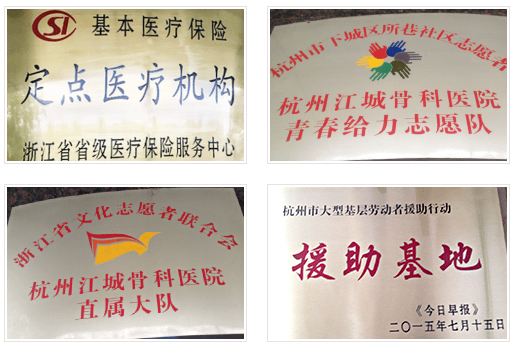 SI 基本医疗保险
定点医疗机构
浙江省省级医疗保险服务中心
杭州市下城区所巷社区志愿者
杭州江城骨科医院
青春给力志愿队
浙江省文化志愿者联合会
杭州江城骨科医院
直属大队
杭州市大型基层劳动者援助行动
援助基地
《今日早报》
二〇一五年七月十五日